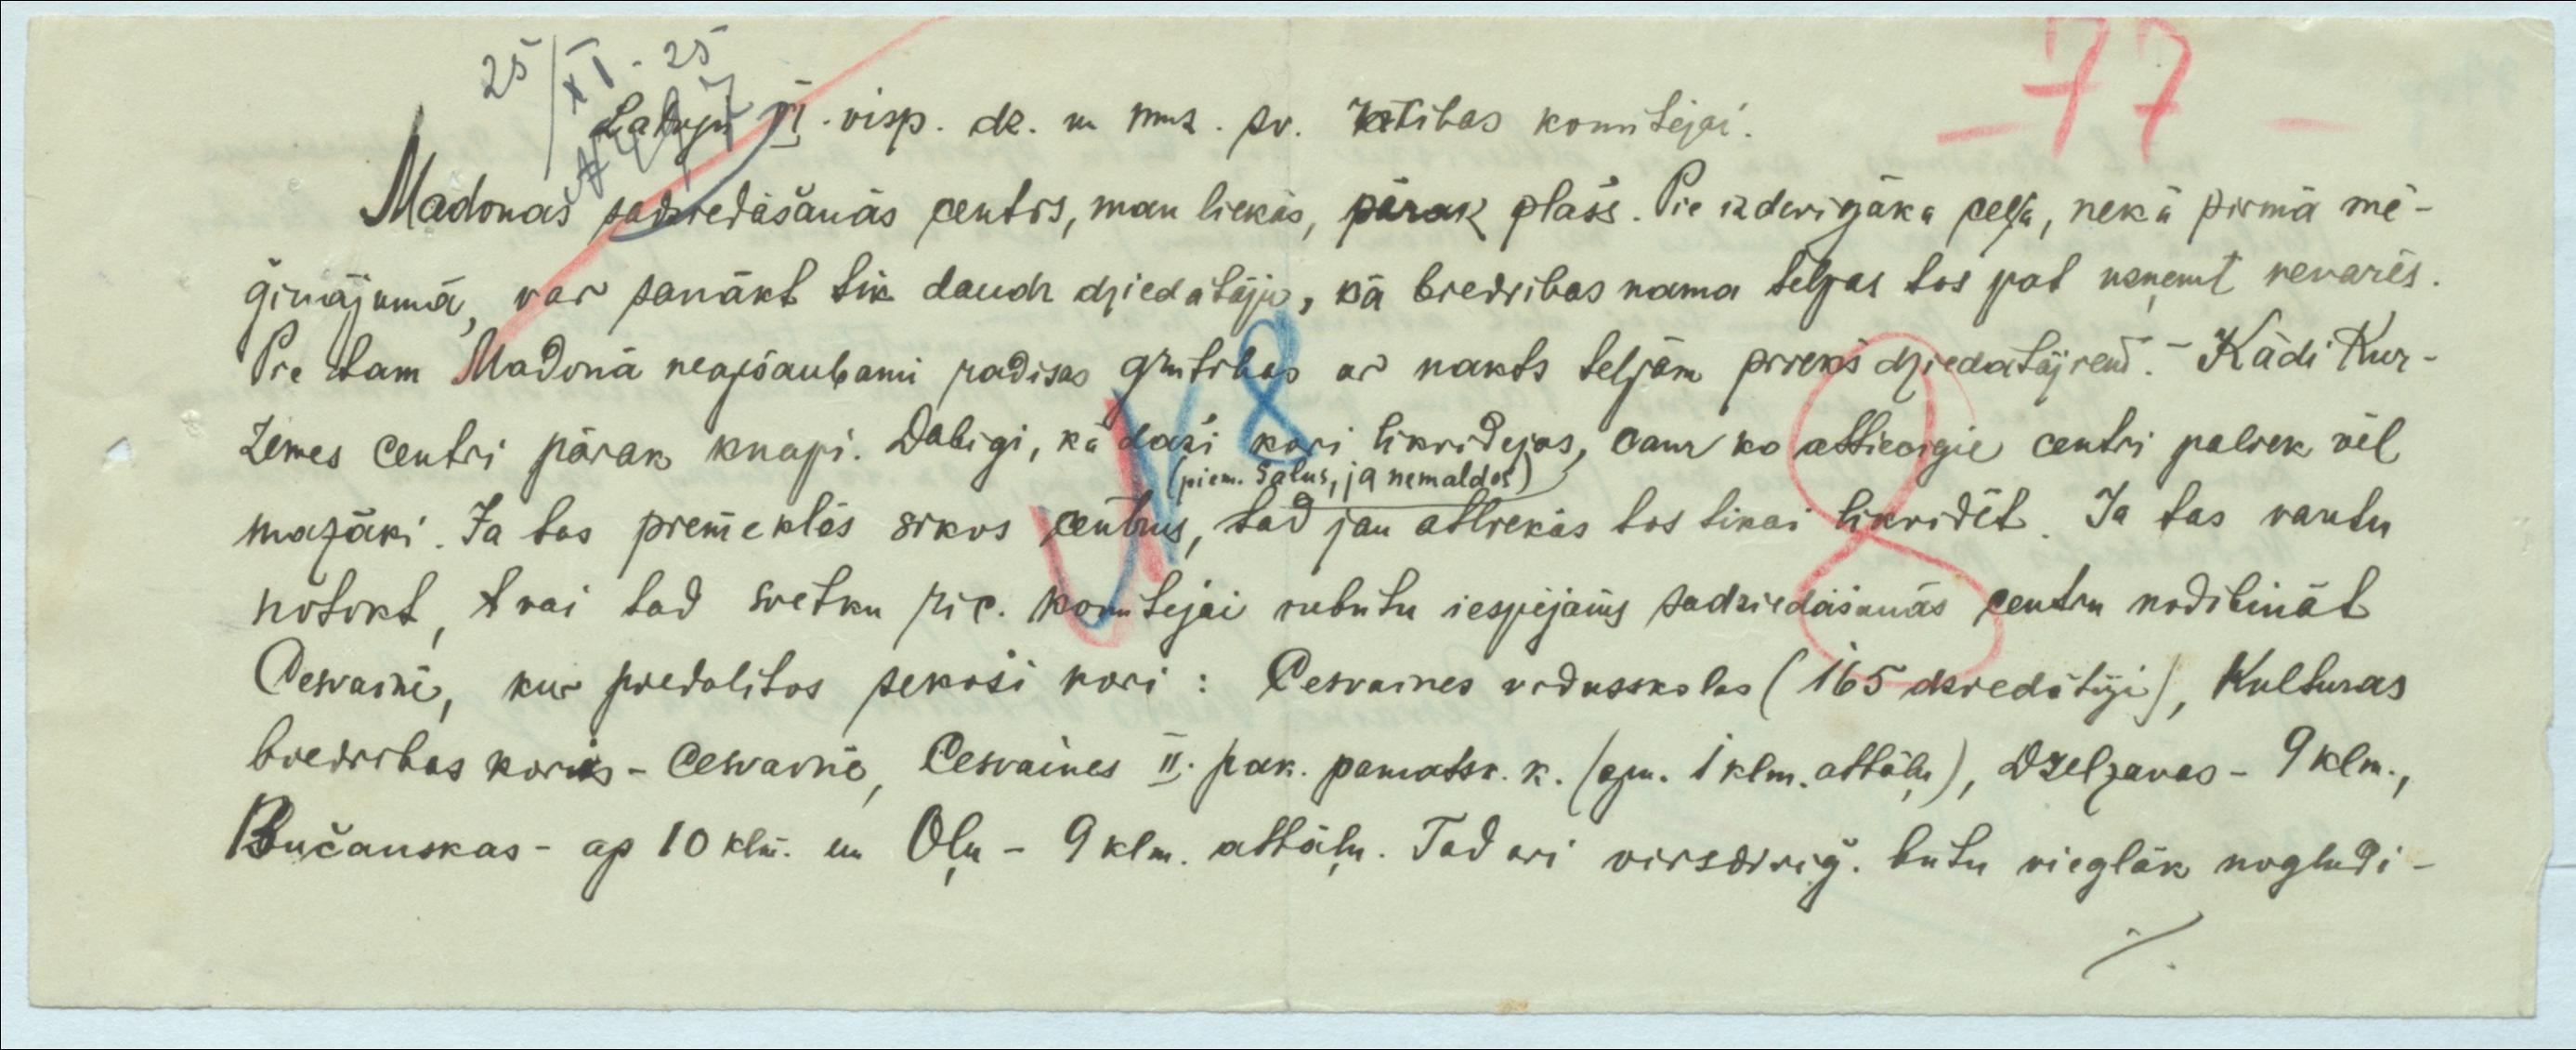 25/XI-25
77
Latvju VI. visp. dz. un muz. sv. rīcības komitejai.
Madonas sadziedāšanās centrs, man liekās, pārak plašs. Pie izdevigāka ceļa, nekā pirmā mē-
ģinājumā, var sanākt tik daudz dziedatāju, kā biedribas nama telpas tos pat uzņemt nevarēs.
Pie tam Madonā neapšaubami radisas grutibas ar nakts telpām priekš dziedatājiem. - Kādi Kur-
zemes centri pārak knapi. Dabigi, ka daži kori likvidejas, caur ko attiecigie centri paliek vēl
(piem. Salus, ja nemaldos)
mazāki. Ja tos piemeklēs sikus centrus, tad jau atliekās tos tikai likvidēt. Ja tas varētu
notikt, vai tad svētku ric. komitejai nebutu iespējams sadziedāšanās centru nodibināt
Cesvainē, kur piedalitos sekoši kori: Cesvaines vidusskolas (165 dziedātāji), Kulturas
biedribas koris - Cesvainē, Cesvaines II. pak. pamatsk. k. (apm. 1 klm. attālu), Dzelzavas - 9 klm.,
Bučauskas - ap 10 klm. un Oļu - 9 klm. attāļu. Tad ari virsdiriģ. butu vieglāk nogludi-
./.
N 8
8